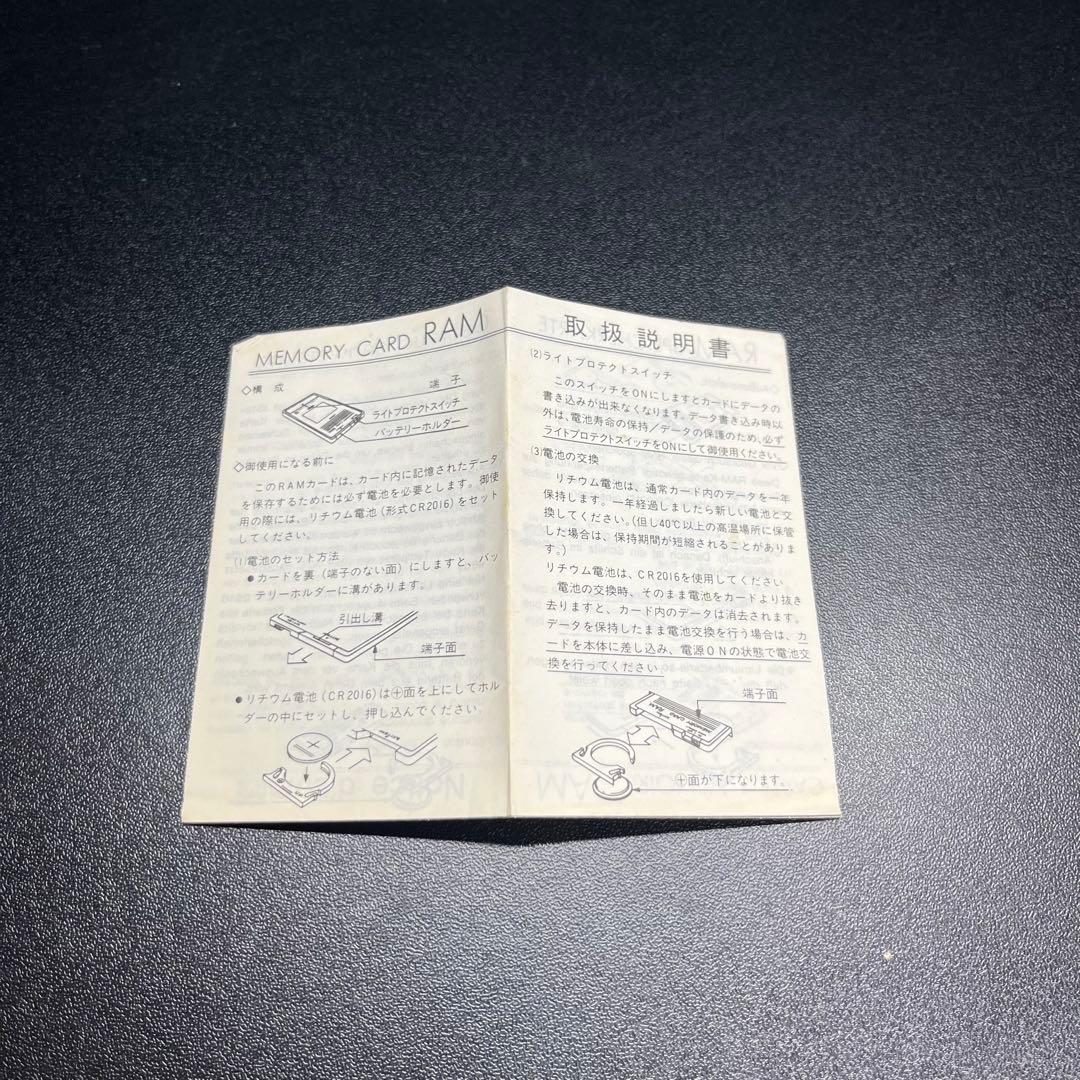 MEMORY CARD RAM
◇構成
端子
ライトプロテクトスイッチ
バッテリーホルダー
◇御使用になる前に
このRAMカードは、カード内に記憶されたデータ
を保存するためには必ず電池を必要とします。御使
用の際には、リチウム電池(形式CR2016)をセット
してください。
(1)電池のセット方法
●カードを裏(端子のない面)にしますと、バッ
テリーホルダーに溝があります。
引出し溝
端子面
●リチウム電池(CR2016)は⊕面を上にしてホル
ダーの中にセットし、押し込んでください。
取扱説明書
(2)ライトプロテクトスイッチ
このスイッチをONにしますとカードにデータの
書き込みが出来なくなります。データ書き込み時以
外は、電池寿命の保持/データの保護のため、必ず
ライトプロテクトスイッチをONにして御使用ください。
(3)電池の交換
リチウム電池は、通常カード内のデータを一年
保持します。一年経過しましたら新しい電池と交
換してください。(但し40℃以上の高温場所に保管
した場合は、保持期間が短縮されることがありま
す。)
リチウム電池は、CR2016を使用してください
電池の交換時、そのまま電池をカードより抜き
去りますと、カード内のデータは消去されます。
データを保持したまま電池交換を行う場合は、カ
ードを本体に差し込み、電源ONの状態で電池交
換を行ってください
端子面
⊕面が下になります。